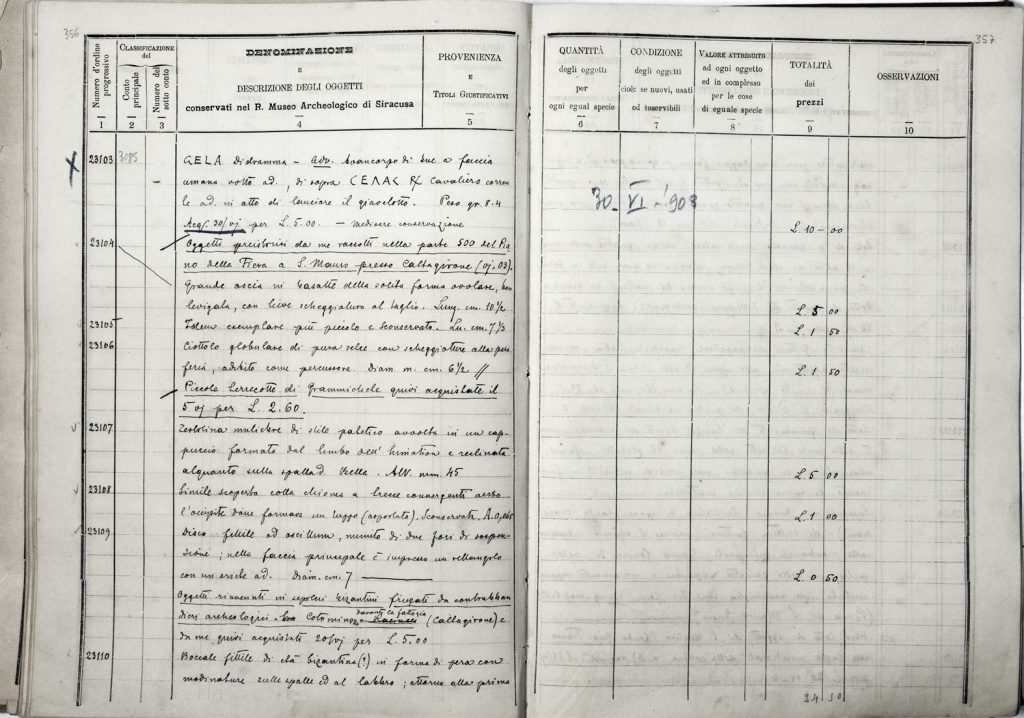 356
Numero d'ordine progressivo
CLASSIFICAZIONE del
Conto principale
Numero del sotto conto
DENOMINAZIONE
E
DESCRIZIONE DEGLI OGGETTI
conservati nel R. Museo Archeologico di Siracusa
PROVENIENZA
E
TITOLI GIUSTIFICATIVI
1 2 3 4 5
X 23103 3085 GELA Didramma – Adv. Avancorpo di bue a faccia
umana volto ad., di sopra CΕΛΑΣ R/ Cavaliere corren
te ad. in atto di lanciare il giavelotto. Peso gr. 8.4
Acq. 30/vj per L. 5.00. – mediocre conservazione
23104 Oggetti preistorici da me raccolti nella parte 500 del Pia
no della Fiera a S. Mauro presso Caltagirone (vj. 03).
Grande ascia in basalte della solita forma ovolare, ben
levigata, con lieve scheggiatura al taglio. Lung. cm. 10 1/2
23105 Idem esemplare più piccolo e sconservato. Lu. cm. 7 1/3
23106 Ciottolo globulare di pura selce con scheggiature alla peri
feria, adibito come percussore. diam. m. cm. 6 1/2 //
Piccole terrecotte di Grammichele quivi acquistate il
5 vj per L. 2.60.
23107 Testolina muliebre di stile patetico avvolta in un cap-
puccio formato dal lembo dell'himation e reclinata
alquanto sulla spalla d. Bella. Alt. mm. 45
23108 Simile scoperta colla chioma a trecce convergenti verso
l'occipite dove formava un tuppo (asportato). Sconservata. A. 0,065
23109 Disco fittile ad oscillum, munito di due fori di sospen-
sione; nella faccia principale è impresso un rettangolo
con un ariete ad. Diam. cm. 7
Oggetti rinvenuti in sepolcri bizantini frugati da contrabban
dieri archeologici. Colominazzo davanti la fattoria (Caltagirone) e
da me quivi acquistati 20/vj per L. 5.00
23110 Boccale fittile di età bizantina (?) in forma di pera con
modinature sulle spalle ed al labbro; attorno alla prima
357
QUANTITÀ
degli oggetti
per
ogni egual specie
CONDIZIONE
degli oggetti
cioè: se nuovi, usati
od inservibili
VALORE ATTRIBUITO
ad ogni oggetto
ed in complesso
per le cose
di eguale specie
TOTALITÀ
dei
prezzi
OSSERVAZIONI
6 7 8 9 10
30 - VI - '903
L. 10 – 00
L. 5 00
L. 1 50
L. 1 50
L. 5 00
L. 1 00
L. 0 50
24 50